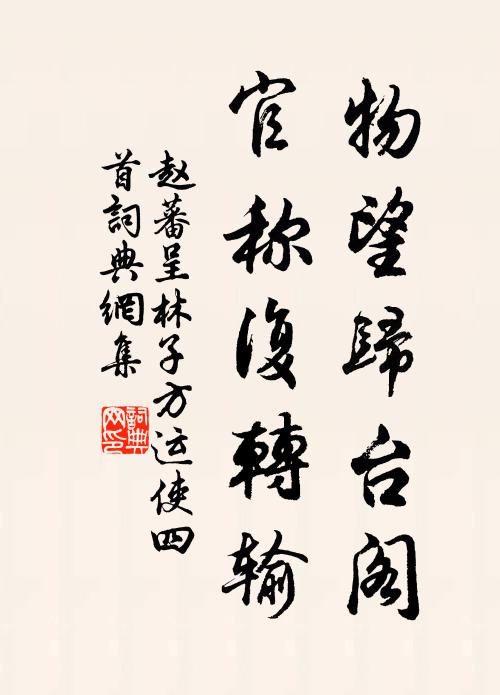 物望歸台阁
官称復轉输
赵蕃呈林子方运使四
首詞典網集
詞典
网印